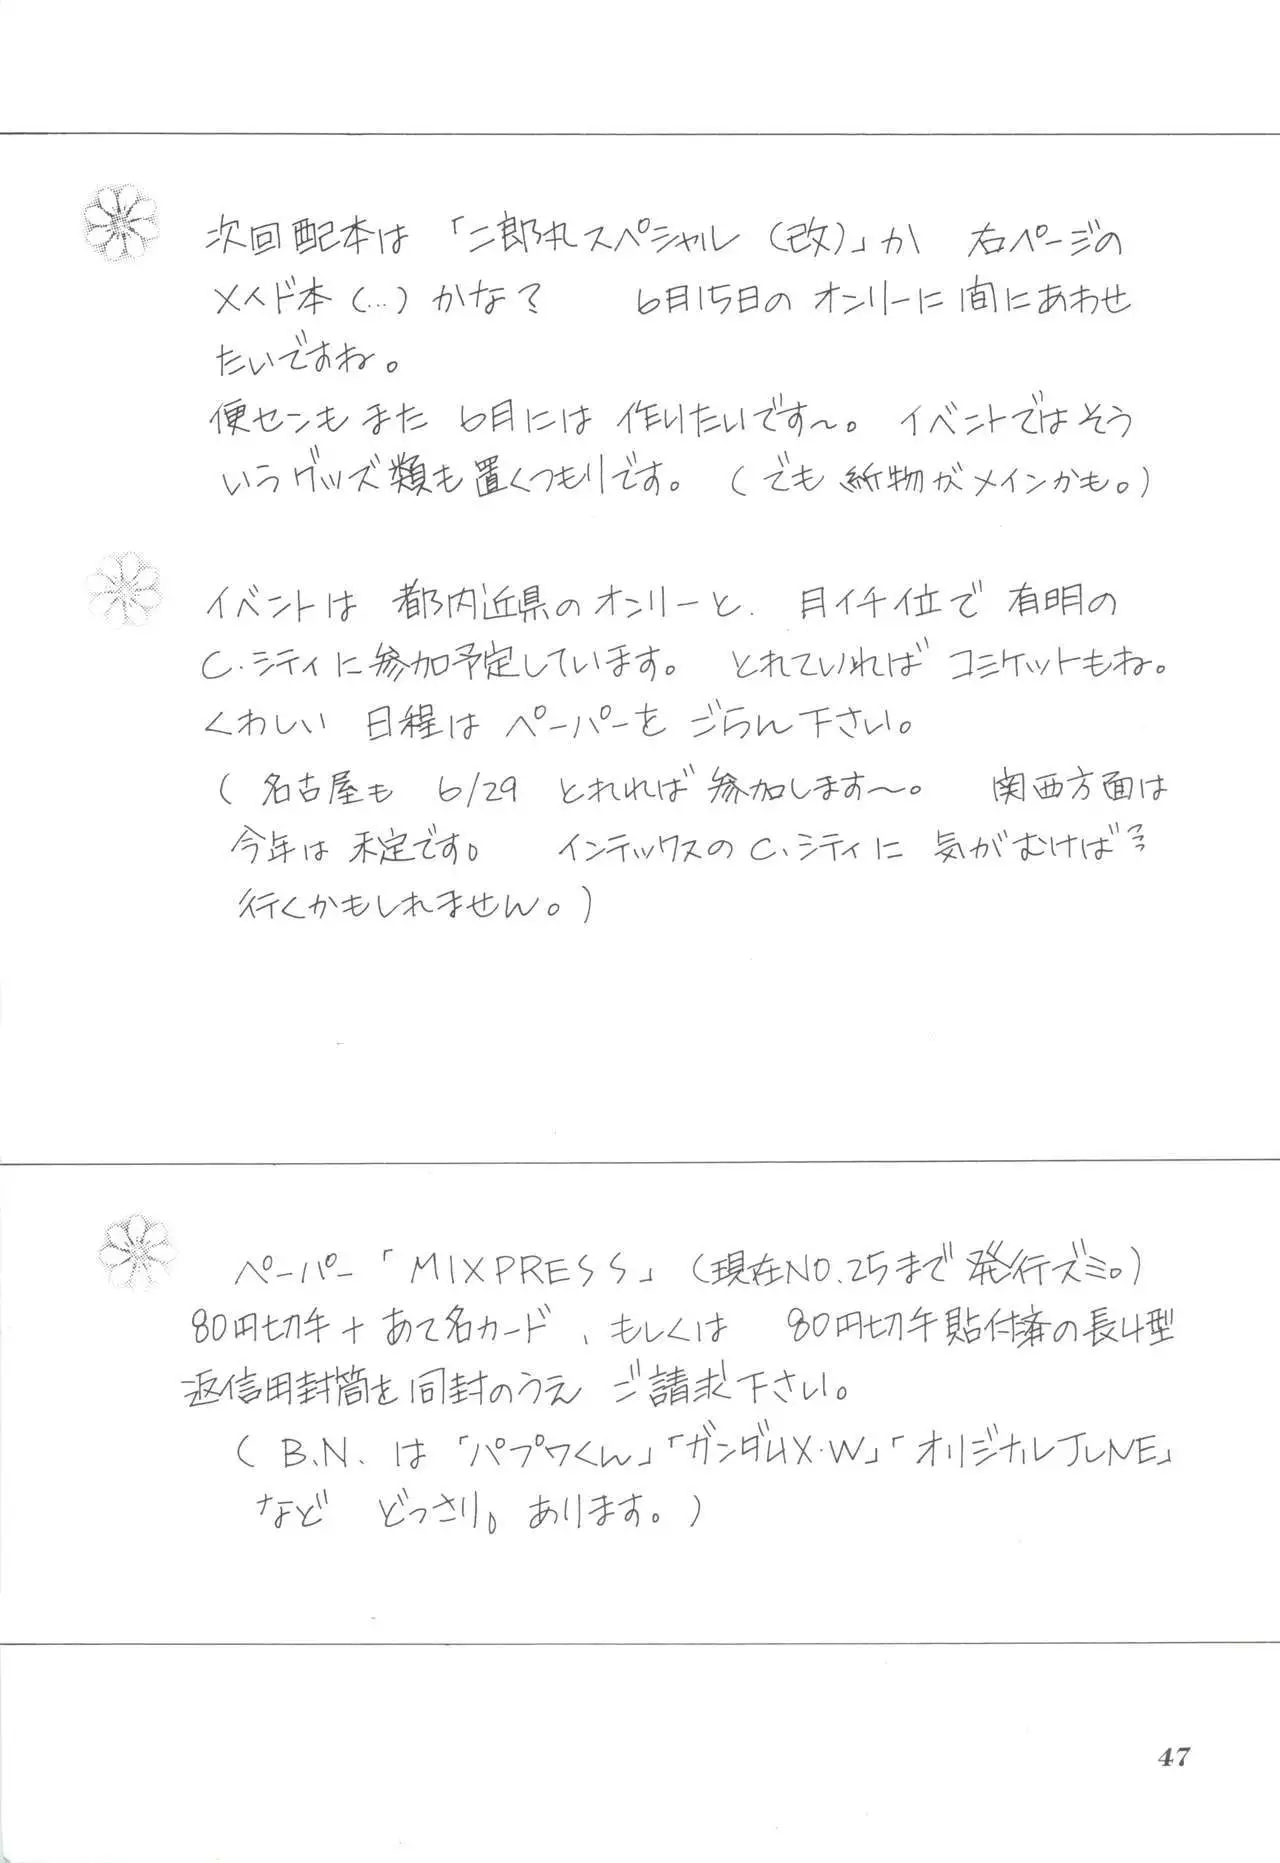 次回配本は「二郎丸スペシャル（改）」か 右ページの
メイド本（…）かな？ 6月15日の オンリーに間にあわせ
たいですね。
便センもまた 6月には 作りたいです〜。イベントではそう
いうグッズ類も置くつもりです。（でも紙物がメインかも。）
イベントは 都内近県のオンリーと、月イチ位で有明の
C.シティに参加予定しています。 とれていればコミケットもね。
くわしい 日程は ペーパーを ごらん下さい。
（名古屋も 6/29 とれれば参加します〜。 関西方面は
今年は 未定です。 インテックスのC.シティに 気がむけば
行くかもしれません。）
ペーパー「MIXPRESS」（現在NO.25まで発行ズミ。）
80円切手＋あて名カード、もしくは 80円切手貼付済の長4型
返信用封筒を同封のうえ ご請求下さい。
（B.N. は「パプワくん」「ガンダムX・W」「オリジナルJUNE」
など どっさり。あります。）
47